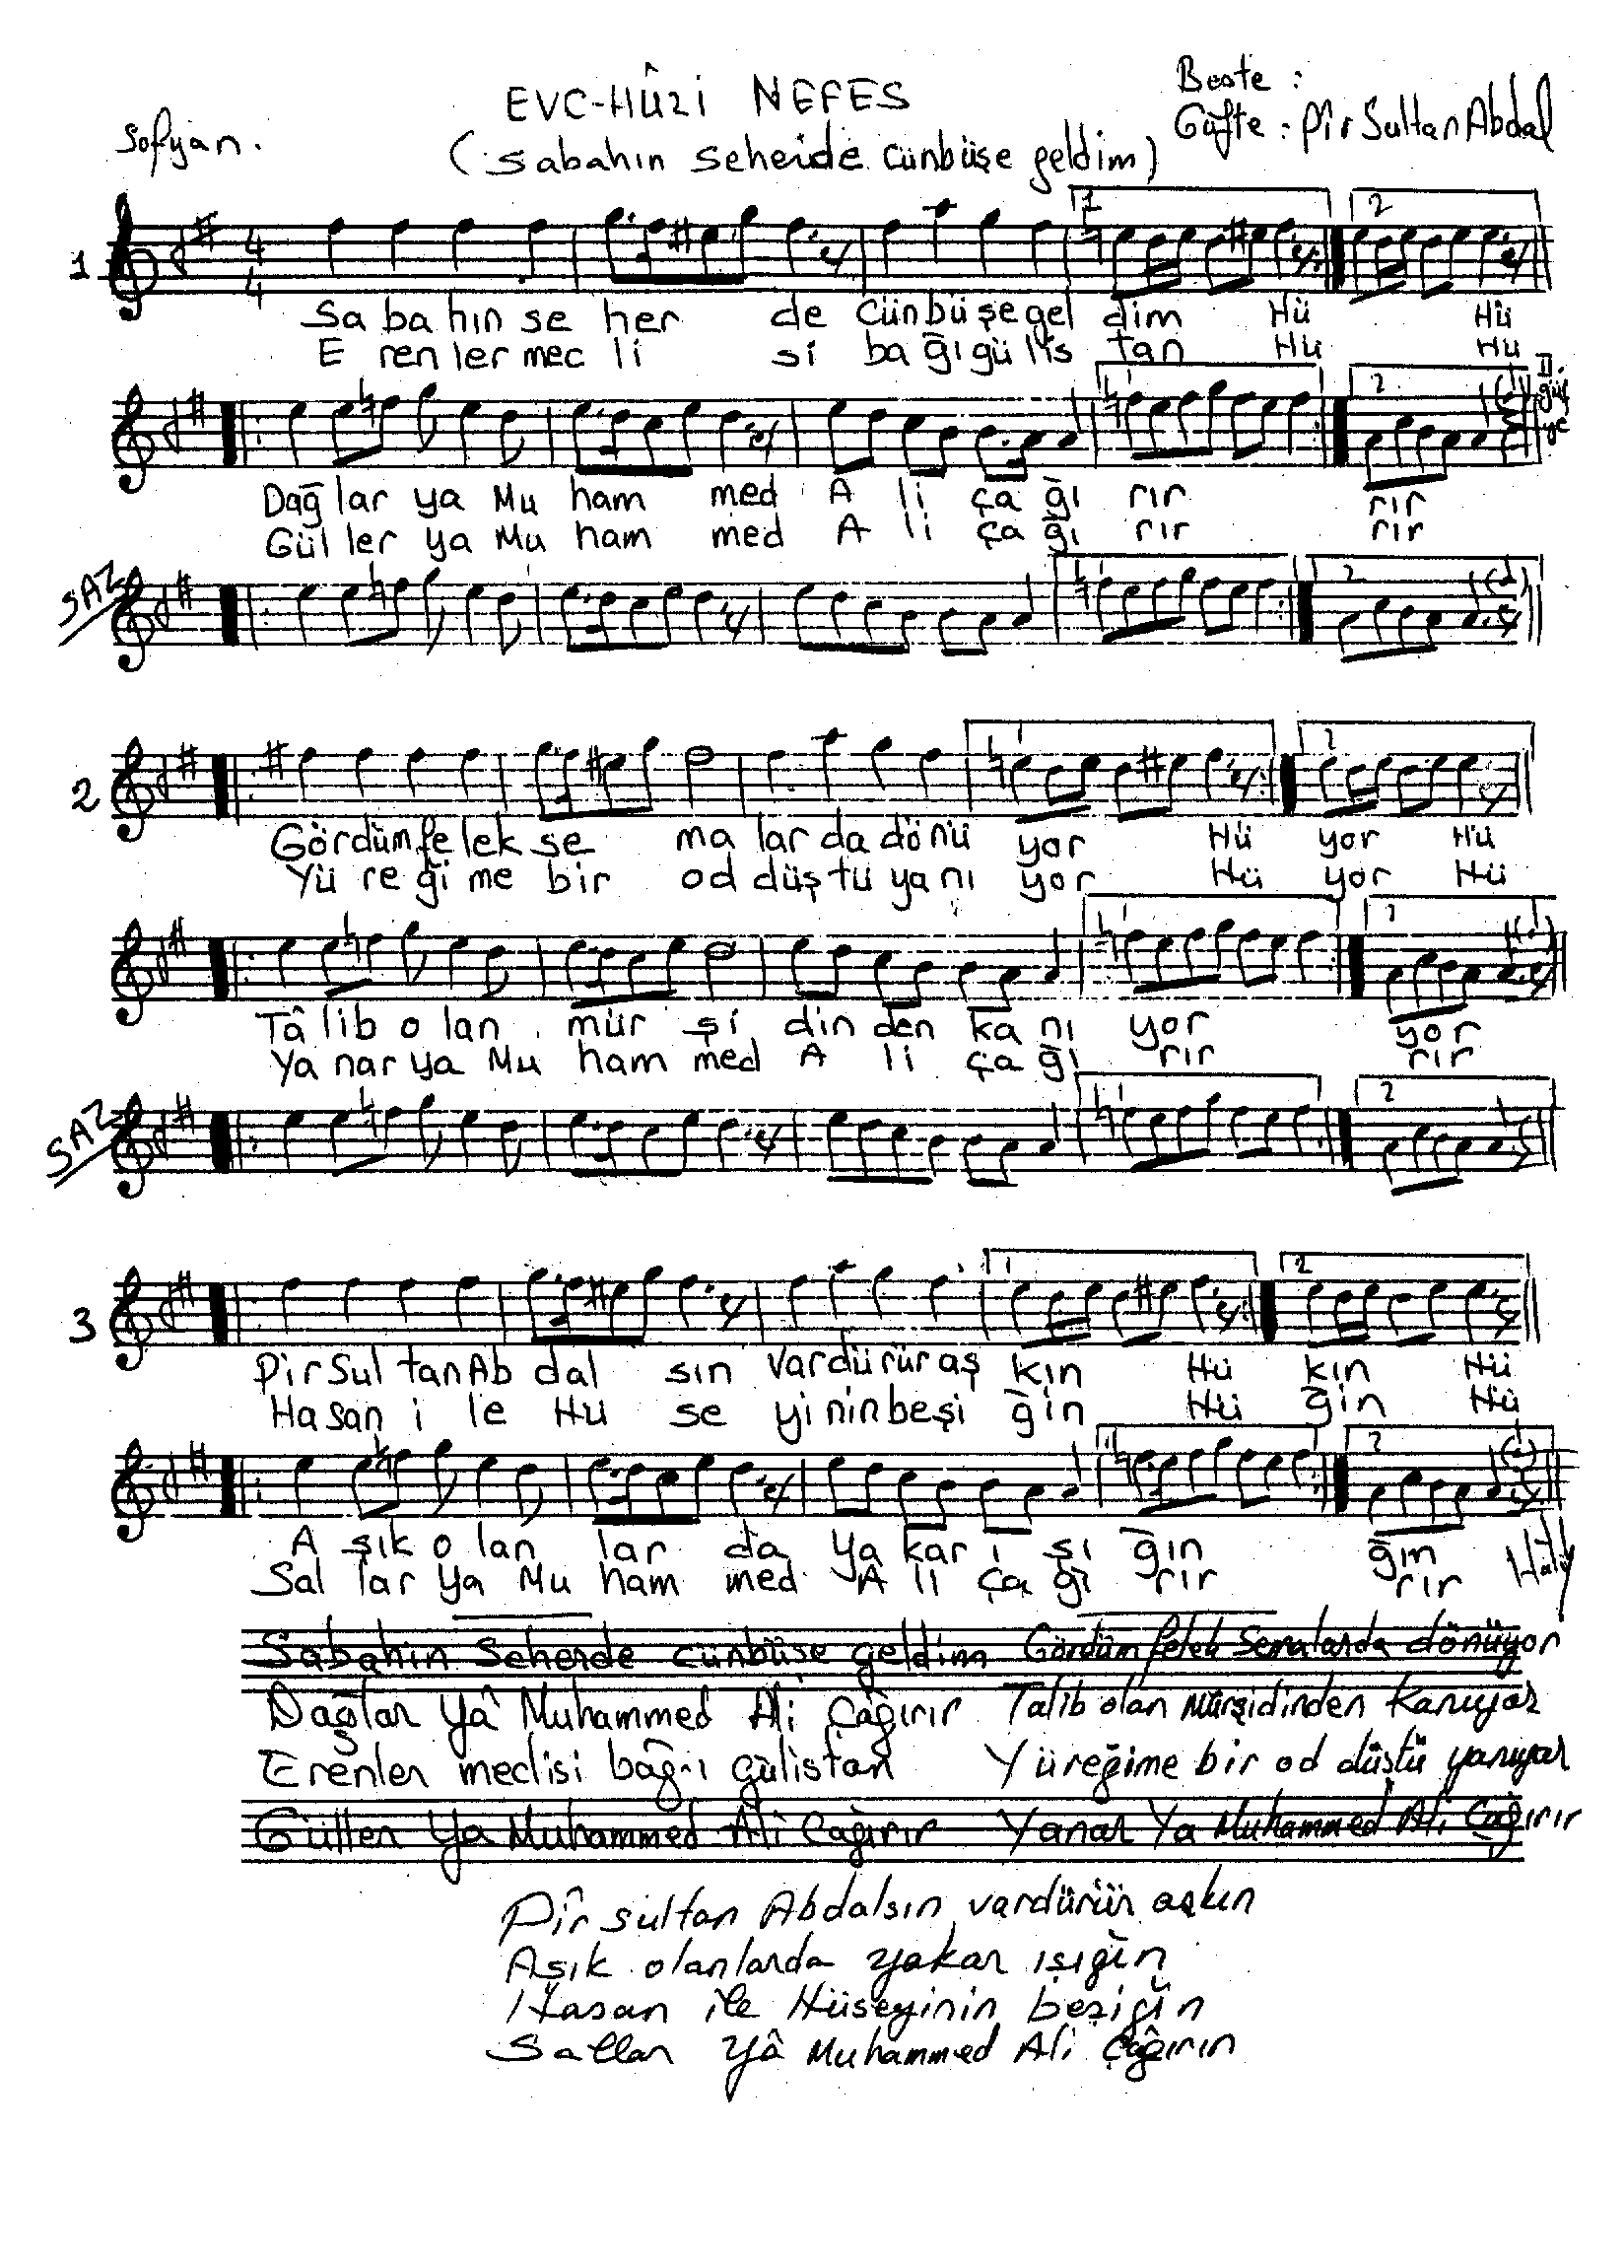 Beste :
EVC-HÛZİ NEFES
Sofyan.
Güfte : Pîr Sultan Abdal
(Sabahın seherde cünbüşe geldim)
1 2
1
4
4
Sa ba hın se her de cün bü şe gel dim Hü Hü
E ren ler mec li si ba ğı gü lis tan Hü Hü
1 2 II. güf ye
Dağ lar ya Mu ham med A li ça ğı rır rır
Gül ler ya Mu ham med A li ça ğı rır rır
SAZ
1 2
2
1 2
Gör düm fe lek se ma lar da dö nü yor Hü yor Hü
Yü re ği me bir od düş tü ya nı yor Hü yor Hü
1 2
Tâ lib o lan mür şi din den ka nı yor yor
Ya nar ya Mu ham med A li ça ğı rır rır
SAZ
1 2
3
1 2
Pir Sul tan Ab dal sın var dü rür aş kın Hü kın Hü
Ha san i le Hü se yi nin be şi ğin Hü ğin Hü
1 2
A şık o lan lar da ya kar ı şı ğın ğın
Sal lar ya Mu ham med A li ça ğı rır rır
Sabahın Seherde cünbüşe geldim Gördüm felek Semalarda dönüyor
Dağlar Yâ Muhammed Ali Çağırır Talib olan Mürşidinden Kanıyor
Erenler meclisi bağ-ı gülistan Yüreğime bir od düştü yanıyor
Güller Ya Muhammed Ali Çağırır Yanar Ya Muhammed Ali Çağırır
Pîr Sultan Abdalsın vardürür aşkın
Aşık olanlarda yakar ışığın
Hasan ile Hüseyinin beşiğin
Sallar Yâ Muhammed Ali Çağırın